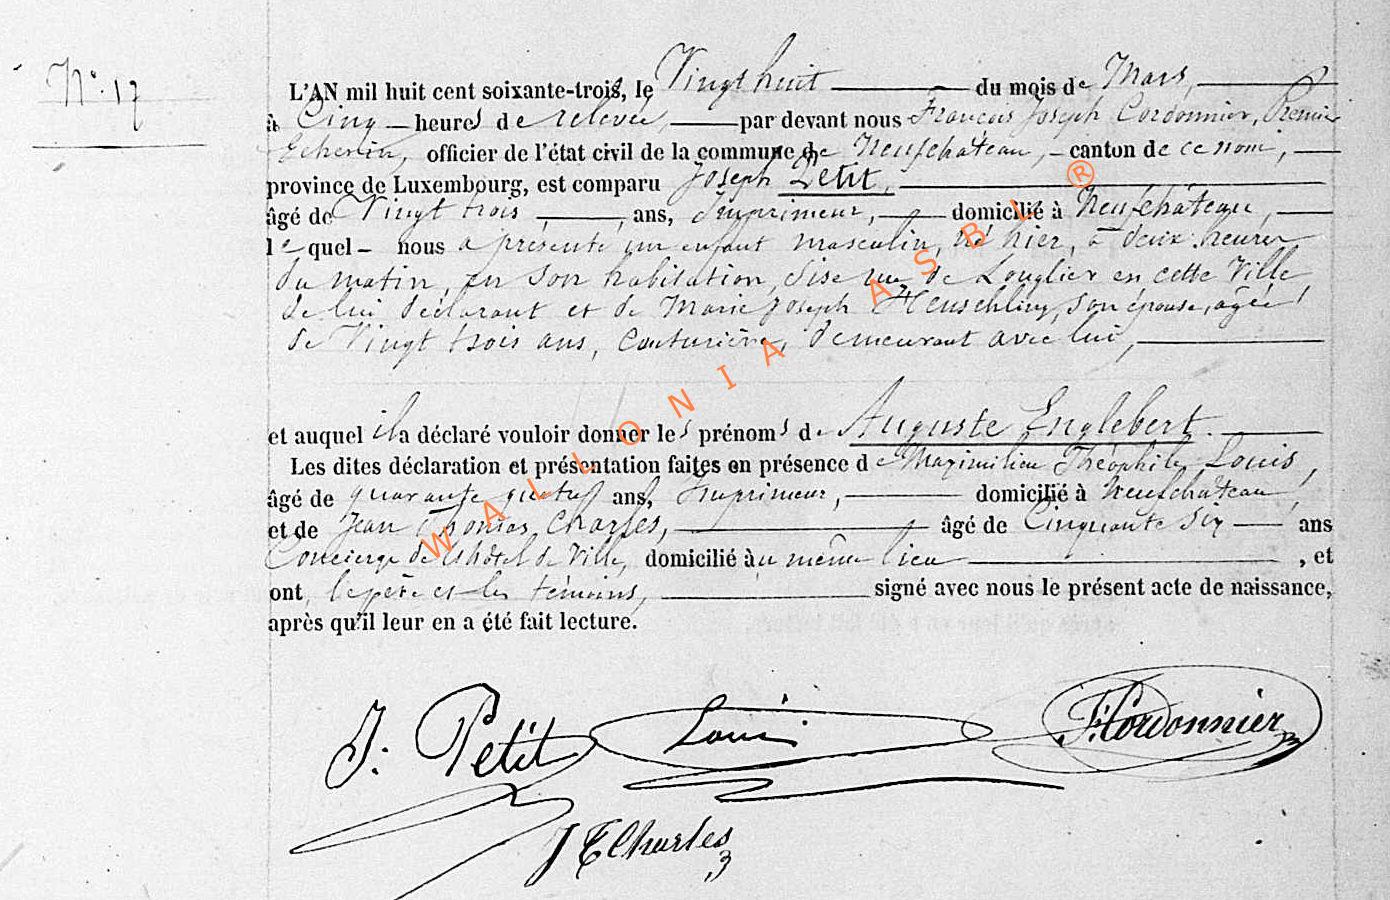 N° 17
L'AN mil huit cent soixante-trois, le Vingt huit du mois de Mars,
à Cinq heures de relevée, par devant nous François Joseph Cordonnier, Premier
Echevin, officier de l'état civil de la commune de Neufchâteau, canton de ce nom,
province de Luxembourg, est comparu Joseph Petit,
âgé de Vingt trois ans, Imprimeur, domicilié à Neufchâteau,
lequel nous a présenté un enfant masculin, né hier, à deux heures
du matin, en son habitation, sise rue de Longlier en cette Ville,
de lui déclarant et de Marie Joseph Heuschling, son épouse, âgée
de Vingt trois ans, Couturière, demeurant avec lui,
et auquel il a déclaré vouloir donner les prénoms de Auguste Englebert.
Les dites déclaration et présentation faites en présence de Maximilien Théophile Louis,
âgé de quarante quatre ans, Imprimeur, domicilié à Neufchâteau,
et de Jean Thomas Charles, âgé de Cinquante six ans
Concierge de l'hôtel de Ville, domicilié au même lieu, et
ont, le père et les témoins, signé avec nous le présent acte de naissance,
après qu'il leur en a été fait lecture.
J. Petit Louis F. Cordonnier
J T Charles
WALLONIA ASBL ®